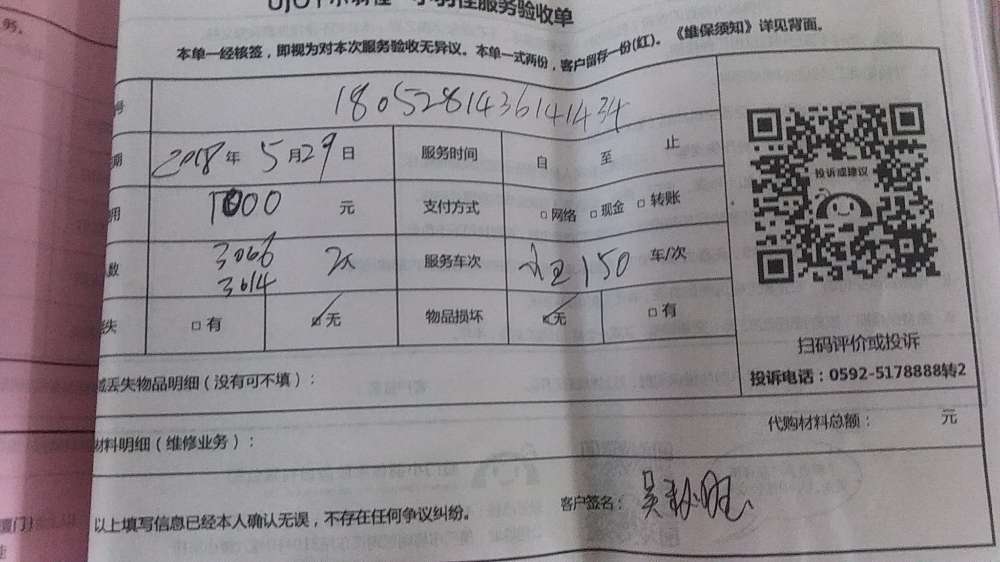 服务验收单
务。
本单一经核签，即视为对本次服务验收无异议。本单一式两份，客户留存一份(红)。《维保须知》详见背面。
号 1805281436141434
期 2018年 5月29日 服务时间 自 至 止
用 1000 元 支付方式 □网络 □现金 □转账
数 3066 3614 2人 服务车次 150 车/次
失 □有 ☑无 物品损坏 ☑无 □有
投诉或建议
扫码评价或投诉
投诉电话：0592-5178888转2
丢失物品明细（没有可不填）：
代购材料总额： 元
材料明细（维修业务）：
客户签名： 吴
以上填写信息已经本人确认无误，不存在任何争议纠纷。
厦门